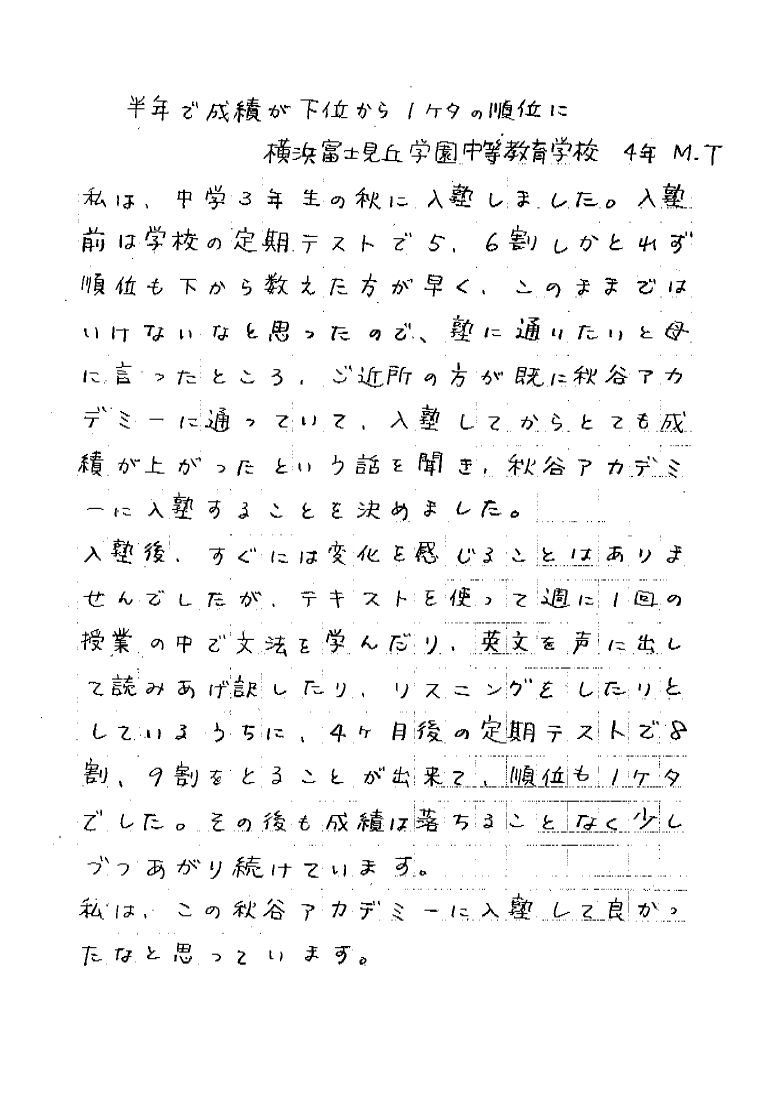 半年で成績が下位から1ケタの順位に
横浜富士見丘学園中等教育学校 4年 M.T
私は、中学3年生の秋に入塾しました。入塾
前は学校の定期テストで5、6割しかとれず
順位も下から数えた方が早く、このままでは
いけないなと思ったので、塾に通りたいと母
に言ったところ、ご近所の方が既に秋谷アカ
デミーに通っていて、入塾してからとても成
績が上がったという話を聞き、秋谷アカデミ
ーに入塾することを決めました。
入塾後、すぐには変化を感じることはありま
せんでしたが、テキストを使って週に1回の
授業の中で文法を学んだり、英文を声に出し
て読みあげ訳したり、リスニングをしたりと
しているうちに、4ヶ月後の定期テストで8
割、9割をとることが出来て、順位も1ケタ
でした。その後も成績は落ちることなく少し
づつあがり続けています。
私は、この秋谷アカデミーに入塾して良かっ
たなと思っています。